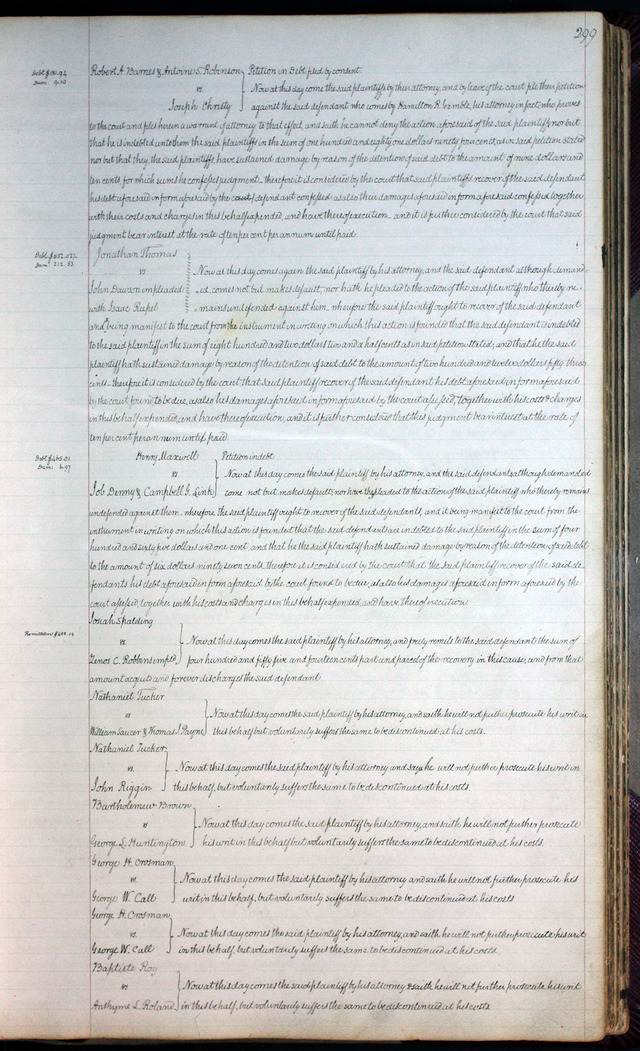 299
Debt $181.94
Dam. 9.10
Robert A Barnes & Antoine S. Robinson Petition in Debt filed by consent.
vs Now at this day come the said plaintiffs by their attorney, and by leave of the court file their petition
Joseph Christy against the said defendant who comes by Hamilton R. Gamble, his attorney in fact, who proves
to the court and files herein a warrant of attorney to that effect, and saith he cannot deny the action aforesaid of the said plaintiffs, nor but
that he is indebted unto them the said plaintiffs in the sum of one hundred and eighty one dollars ninety four cents, as in said petition stated
nor but that they, the said plaintiffs, have sustained damage by reason of the detention of said debt to the amount of nine dollars and
ten cents for which sums he confesses judgment. therefore it is considered by the court that said plaintiffs recover of the said defendant
his debt aforesaid in form aforesaid by the court/defendant confessed also their damages aforesaid in form aforesaid confessed, together
with their costs and charges in this behalf expended, and have thereof execution. and it is further considered by the court that said
judgment bear interest at the rate of ten per cent per annum until paid.
Debt $802.02½
Dam. 212.53
Jonathan Thomas
vs Now at this day comes again the said plaintiff by his attorney, and the said defendant although demand
John Dawson impleaded ed comes not but makes default, nor hath he pleaded to the action of the said plaintiff who thereby re-
with Isaac Rupel mains undefended against him, wherefore the said plaintiff ought to recover of the said defendant
and being manifest to the court from the instrument in writing on which this action is founded that the said defendant is indebted
to the said plaintiff in the sum of eight hundred and two dollars two and a half cents as in said petition stated, and that he the said
plaintiff hath sustained damage by reason of the detention of said debt to the amount of two hundred and twelve dollars fifty three
cents. therefore it is considered by the court that said plaintiff recover of the said defendant his debt aforesaid in form aforesaid
by the court found to be due, as also his damages aforesaid in form aforesaid by the court assessed, together with his costs & charges
in this behalf expended, and have thereof execution, and it is further considered that this judgment bear interest at the rate of
ten per cent per annum until paid.
Debt $465.01
Dam. 6.97
Henry Maxwell Petition in debt
vs Now at this day comes the said plaintiff by his attorney, and the said defendants although demanded
Job Denny & Campbell G. Link come not but makes default, nor have they pleaded to the action of the said plaintiff who thereby remains
undefended against them. wherefore the said plaintiff ought to recover of the said defendants, and it being manifest to the court from the
instrument in writing on which this action is founded that the said defendant are indebted to the said plaintiff in the sum of four
hundred and sixty five dollars and one cent, and that he the said plaintiff hath sustained damage by reason of the detention of said debt
to the amount of six dollars ninety seven cents, therefore it is considered by the court that the said plaintiff recover of the said de-
fendants his debt aforesaid in form aforesaid by the court found to be due, as also his damages aforesaid in form aforesaid by the
court assessed, together with his costs and charges in this behalf expended, and have thereof execution
Josiah Spalding
vs. Now at this day comes the said plaintiff by his attorney, and freely remits to the said defendant the sum of
Zenos C. Robbins impld four hundred and fifty five and fourteen cents part and parcel of the recovery in this cause, and from that
amount acquits and forever discharges the said defendant
Nathaniel Tucker
vs Now at this day comes the said plaintiff by his attorney, and saith he will not further prosecute his writ in
William Saucer & Thomas J. Payne this behalf but voluntarily suffers the same to be discontinued at his costs.
Nathaniel Tucker
vs. Now at this day comes the said plaintiff by his attorney and says he will not further prosecute his writ in
John Riggin this behalf, but voluntarily suffers the same to be discontinued at his costs.
Bartholemew Brown
vs Now at this day comes the said plaintiff by his attorney, and saith he will not further prosecute
George L. Huntington his writ in this behalf but voluntarily suffers the same to be discontinued at his costs.
George H. Crosman
vs. Now at this day comes the said plaintiff by his attorney and saith he will not further prosecute his
George W. Call writ in this behalf, but voluntarily suffers the same to be discontinued at his costs
George H. Crosman
vs. Now at this day comes the said plaintiff by his attorney, and saith he will not further prosecute his writ
George W. Call in this behalf, but voluntarily suffers the same to be discontinued at his costs.
Baptiste Roy
vs Now at this day comes the said plaintiff by his attorney & saith he will not further prosecute his writ
Anthyme L. Roland in this behalf, but voluntarily suffers the same to be discontinued at his costs.